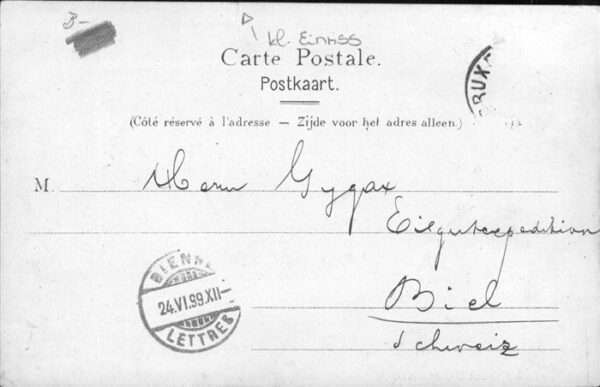 3.-
kl. Einriss
Carte Postale.
Postkaart.
BRUX
(Côté réservé à l'adresse — Zijde voor het adres alleen.)
M. Herrn Gygax
Eilgutexpedition
BIENNE
24.VI.99.XII—
LETTRES
Biel
Schweiz